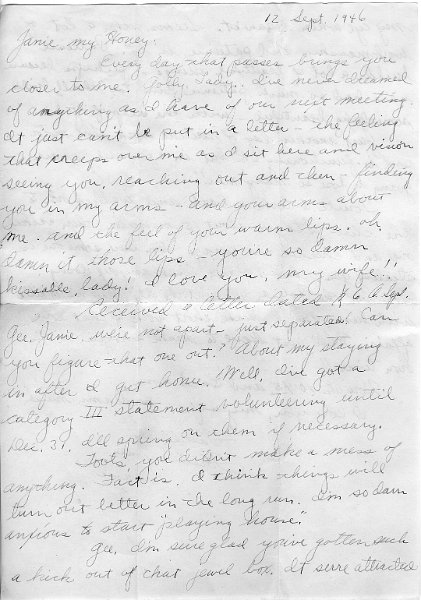 12 Sept. 1946
Janie, my Honey:
Every day that passes brings you
close to me. Golly, Lady, I've never dreamed
of anything as I have of our next meeting.
It just can't be put in a letter - the feeling
that creeps over me as I sit here and vision
seeing you, reaching out and then - finding
you in my arms - and your arms about
me - and the feel of your warm lips. Oh,
damn it those lips - you're so damn
kissable, lady! I love you, my wife!!
Received a letter dated 6 Sept.
Gee, Janie, we're not apart - just separated! Can
you figure that one out? About my staying
in after I get home. Well, I've got a
category III statement volunteering until
Dec. 31. I'll spring on them if necessary.
Toots, you didn't make a mess of
anything. Fact is, I think things will
turn out better in the long run. I'm so darn
anxious to start "playing house."
Gee, I'm sure glad you've gotten such
a kick out of that jewel box. It attracted